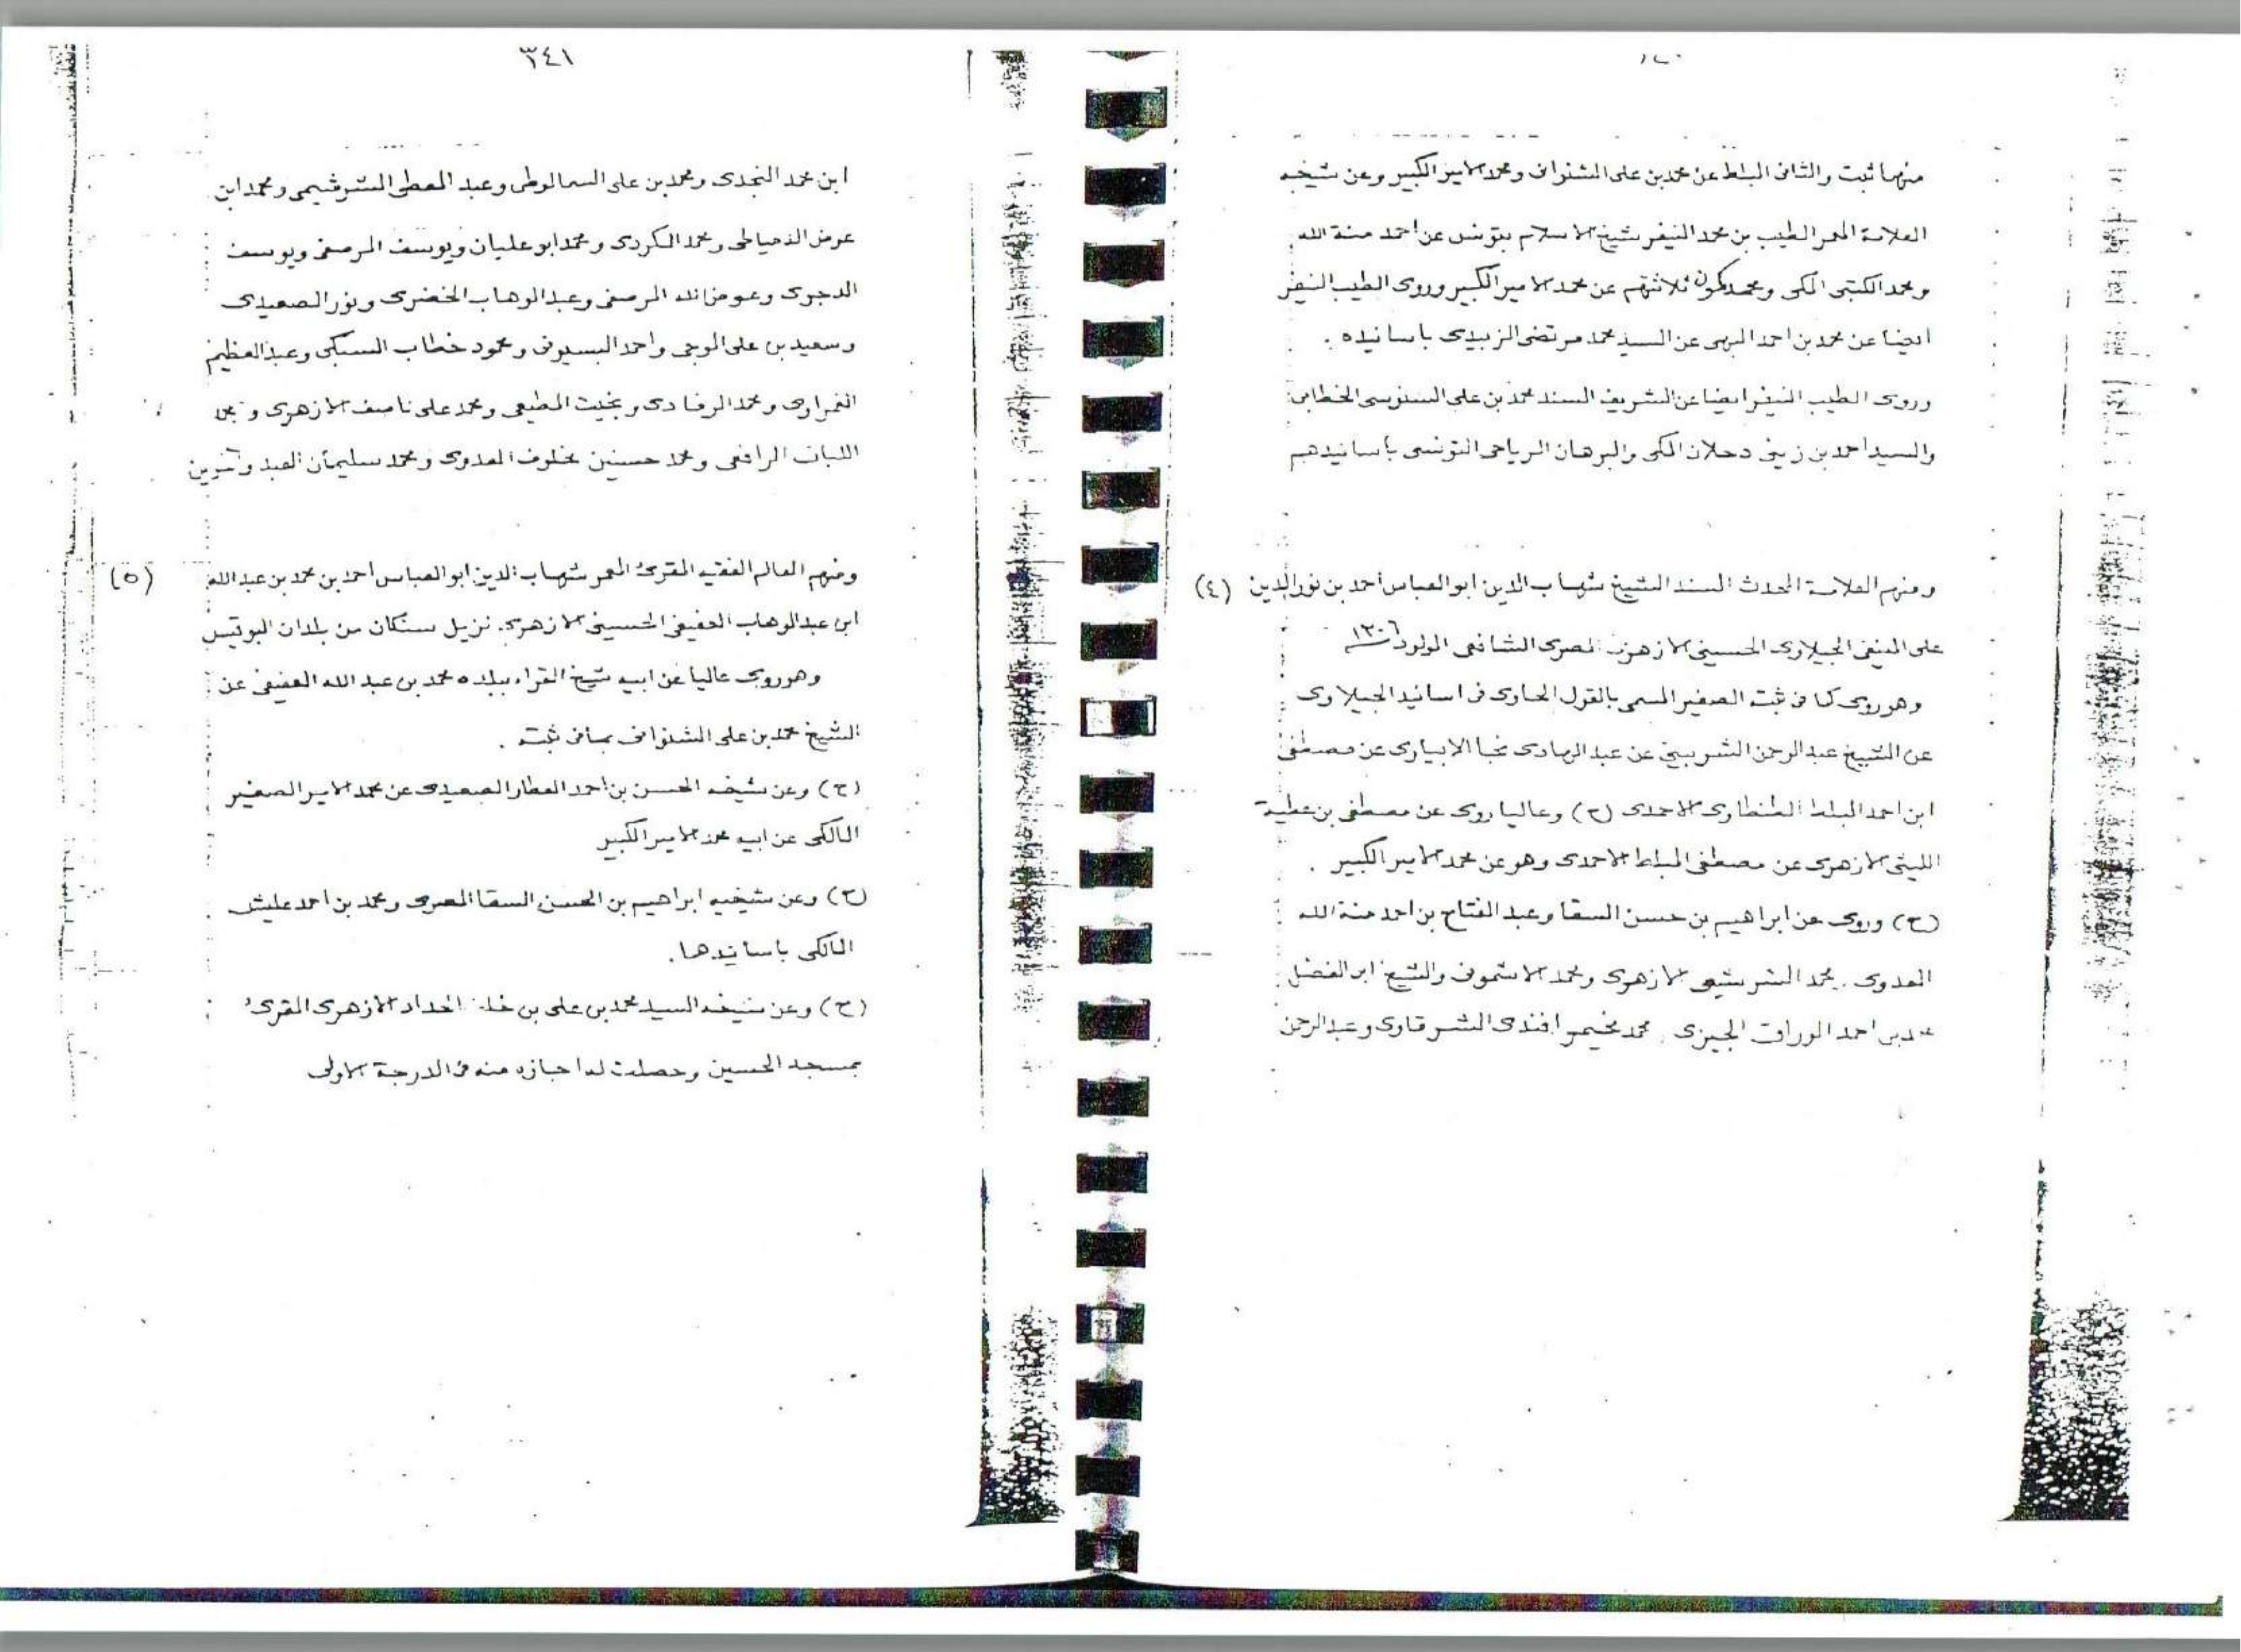 منهما ثبت والثانى البلط عن محمد بن على الشنوانى ومحمد الامير الكبير وعن شيخه
العلامة المعمر الطيب بن محمد النيفر شيخ الاسلام بتونس عن احمد منة الله
ومحمد الكتبى المكى ومحمد كمون ثلاثتهم عن محمد الامير الكبير وروى الطيب النيفر
ايضا عن محمد بن احمد البهى عن السيد محمد مرتضى الزبيدى باسانيده .
وروى الطيب النيفر ايضا عن الشريف السند محمد بن على السنوسى الخطابى
والسيد احمد بن زينى دحلان المكى والبرهان الرياحى التونسى بأسانيدهم
(٤) ومنهم العلامة المحدث المسند الشيخ شهاب الدين ابو العباس احمد بن نور الدين
على الحسينى الازهرى المصرى الشافعى المولود ١٣٠٦
وهو روى كما فى ثبته الصغير المسمى بالقول الحاوى فى اسانيد الجيلاوى
عن الشيخ عبد الرحمن الشربينى عن عبد الهادى نجا الابيارى عن مصطفى
ابن احمد البلط الطنطاوى الاحمدى (ح) وعاليا روى عن مصطفى بن عطية
الليثى الازهرى عن مصطفى المبلط الاحمدى وهو عن محمد الامير الكبير .
(ح) وروى عن ابراهيم بن حسن السقا وعبد الفتاح بن احمد منة الله
العدوى . محمد الشرشيمى الازهرى ومحمد الاشمونى والشيخ ابو الفضل
بن احمد الوراق الجيزى . محمد افندى الشرقاوى وعبد الرحمن
٣٤١
ابن محمد النجدى ومحمد بن على السمالوطى وعبد المعطى الشرشيمى ومحمد ابن
عوض الدمياطى ومحمد الكردى ومحمد ابو عليان ويوسف المرصفى ويوسف
الدجوى وعوض الله المرصفى وعبد الوهاب الخضرى ونور الصعيدى
وسعيد بن على الموجى واحمد البسيونى ومحمود خطاب السبكى وعبد العظيم
الغمراوى ومحمد الرفادى وبخيت المطيعى ومحمد على ناصف الازهرى
اللبان الرافعى ومحمد حسنين مخلوف العدوى ومحمد سليمان العبد وآخرين
(٥) ومنهم العالم الفقيه المقرئ المعمر شهاب الدين ابو العباس احمد بن محمد بن عبد الله
ابن عبد الوهاب العفيفى الحسينى الازهرى نزيل سنكات من بلدان
وهو روى عاليا عن ابيه شيخ القراء ببلده محمد بن عبد الله العفيفى عن
الشيخ محمد بن على الشنوانى بما فى ثبته .
(ح) وعن شيخه الحسن بن احمد العطار الصعيدى عن محمد الامير الصغير
المالكى عن ابيه محمد الامير الكبير
(ح) وعن شيخيه ابراهيم بن الحسن السقا المصرى ومحمد بن احمد عليش
المالكى باسانيدهما .
(ح) وعن شيخه السيد محمد بن على بن خلف الحداد الازهرى المقرئ
بمسجد الحسين وحصلت له اجازه منه فى الدرجة الاولى